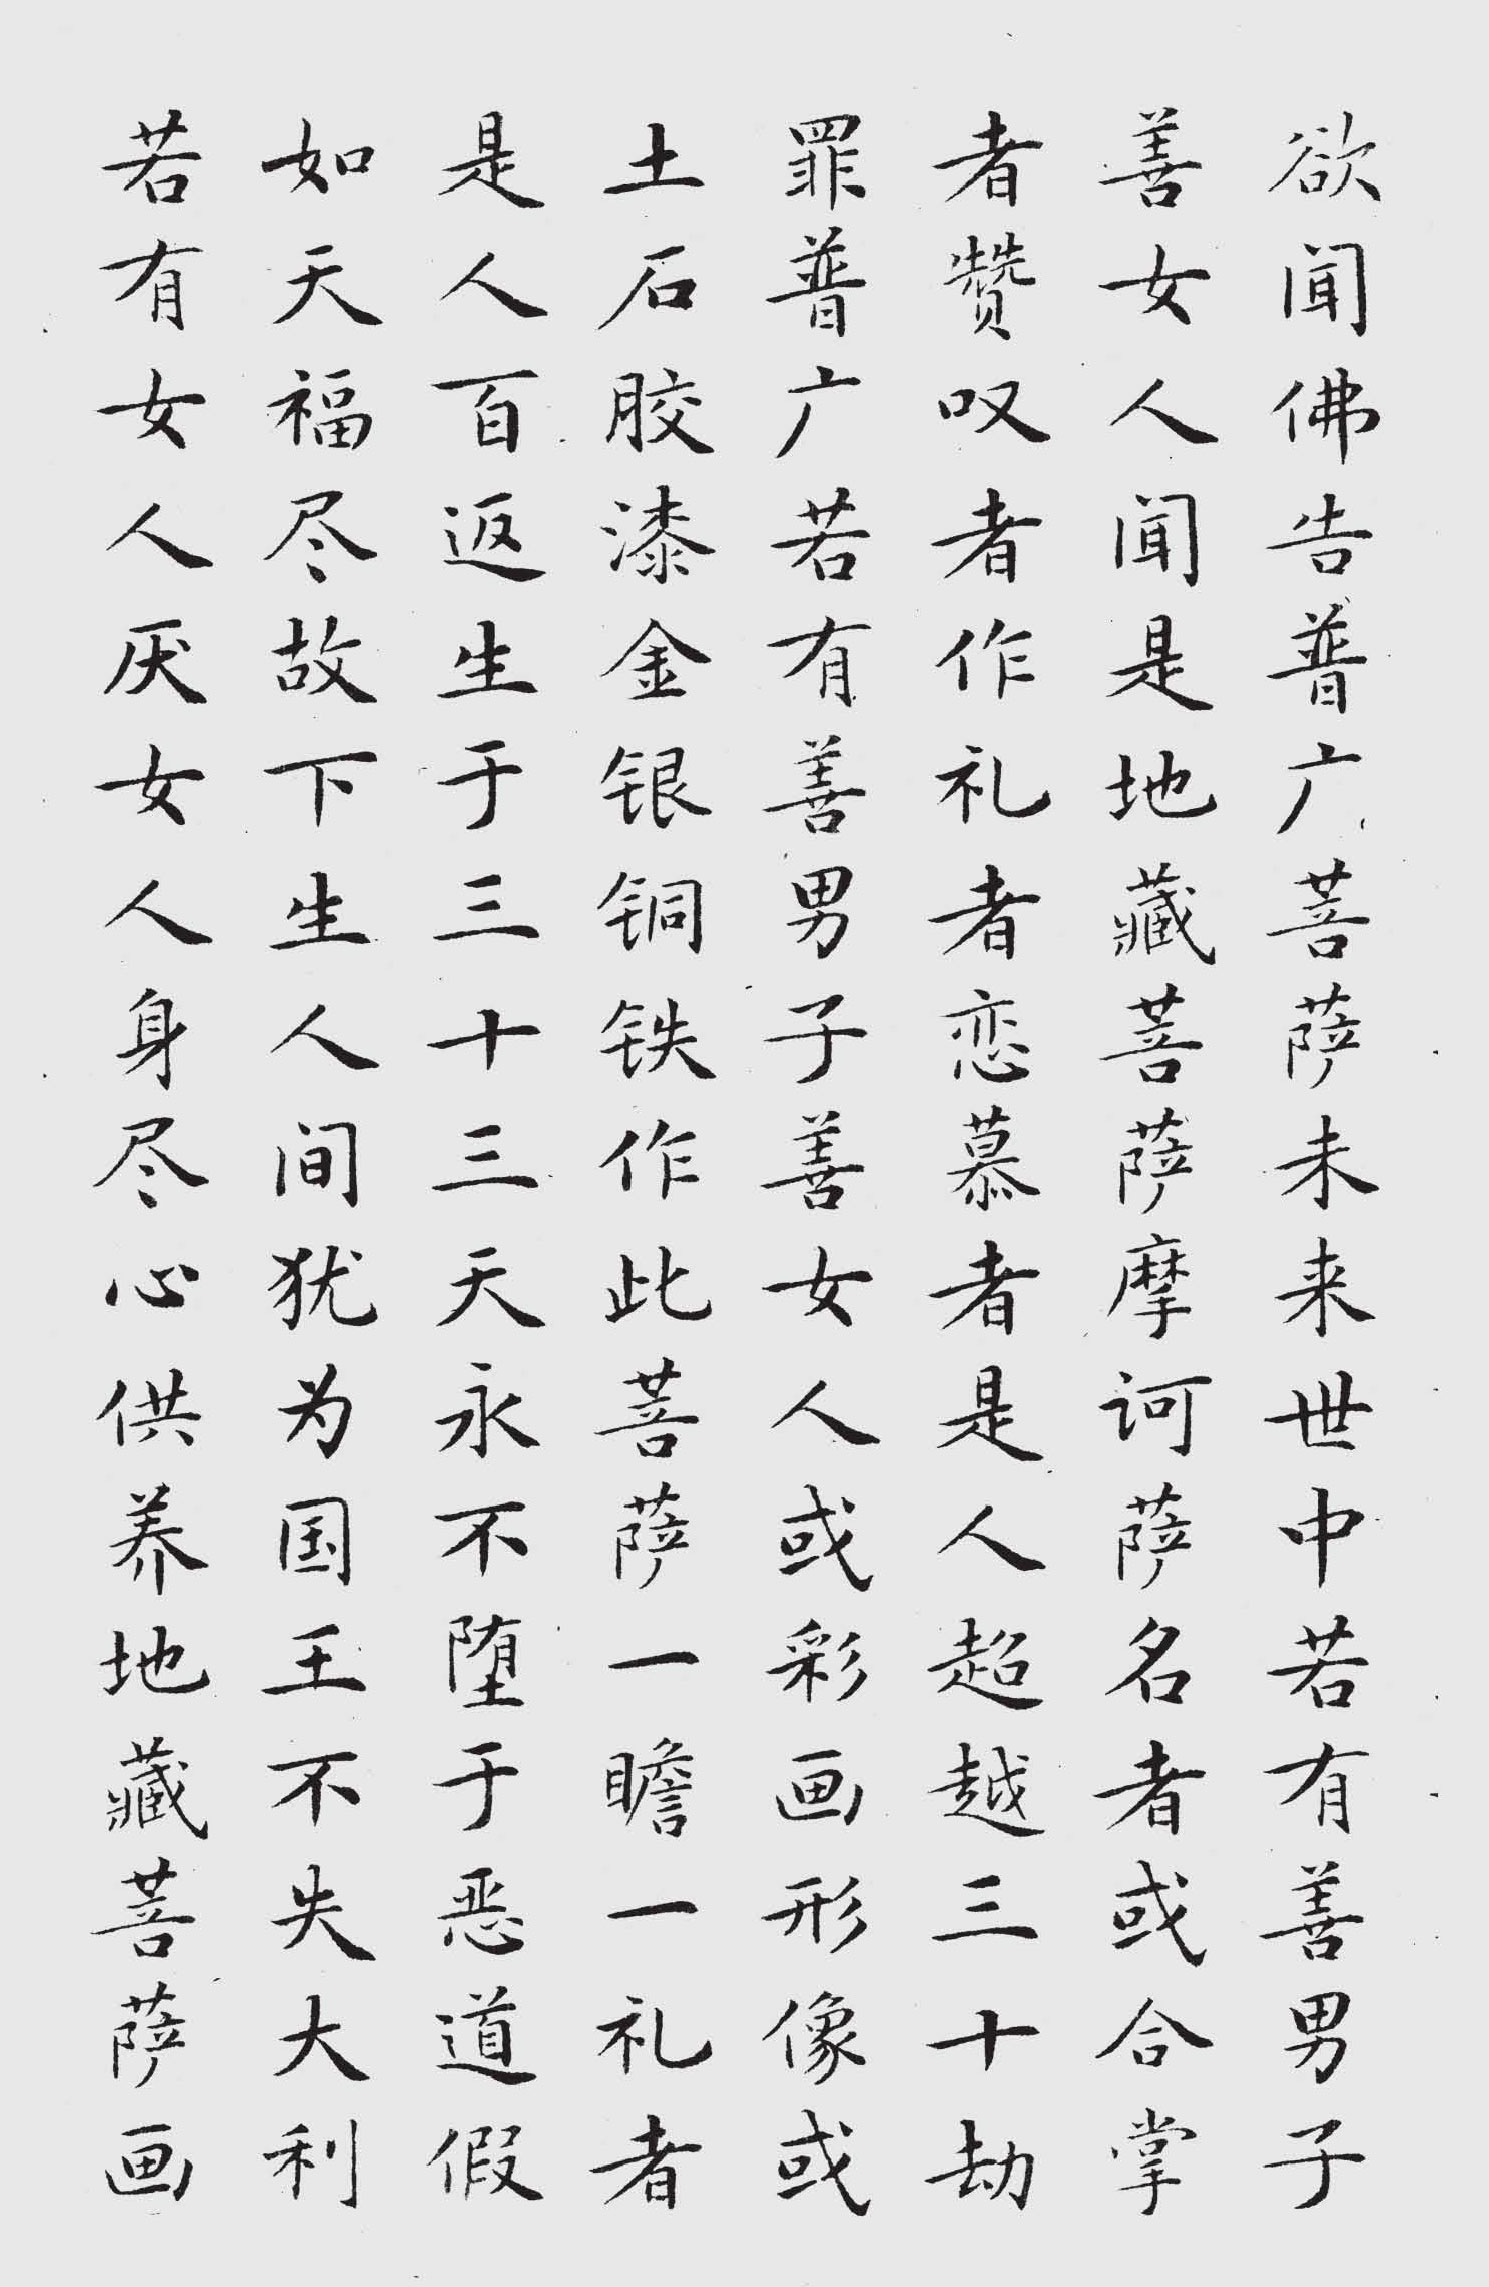 欲闻佛告普广菩萨未来世中若有善男子
善女人闻是地藏菩萨摩诃萨名者或合掌
者赞叹者作礼者恋慕者是人超越三十劫
罪普广若有善男子善女人或彩画形像或
土石胶漆金银铜铁作此菩萨一瞻一礼者
是人百返生于三十三天永不堕于恶道假
如天福尽故下生人间犹为国王不失大利
若有女人厌女人身尽心供养地藏菩萨画